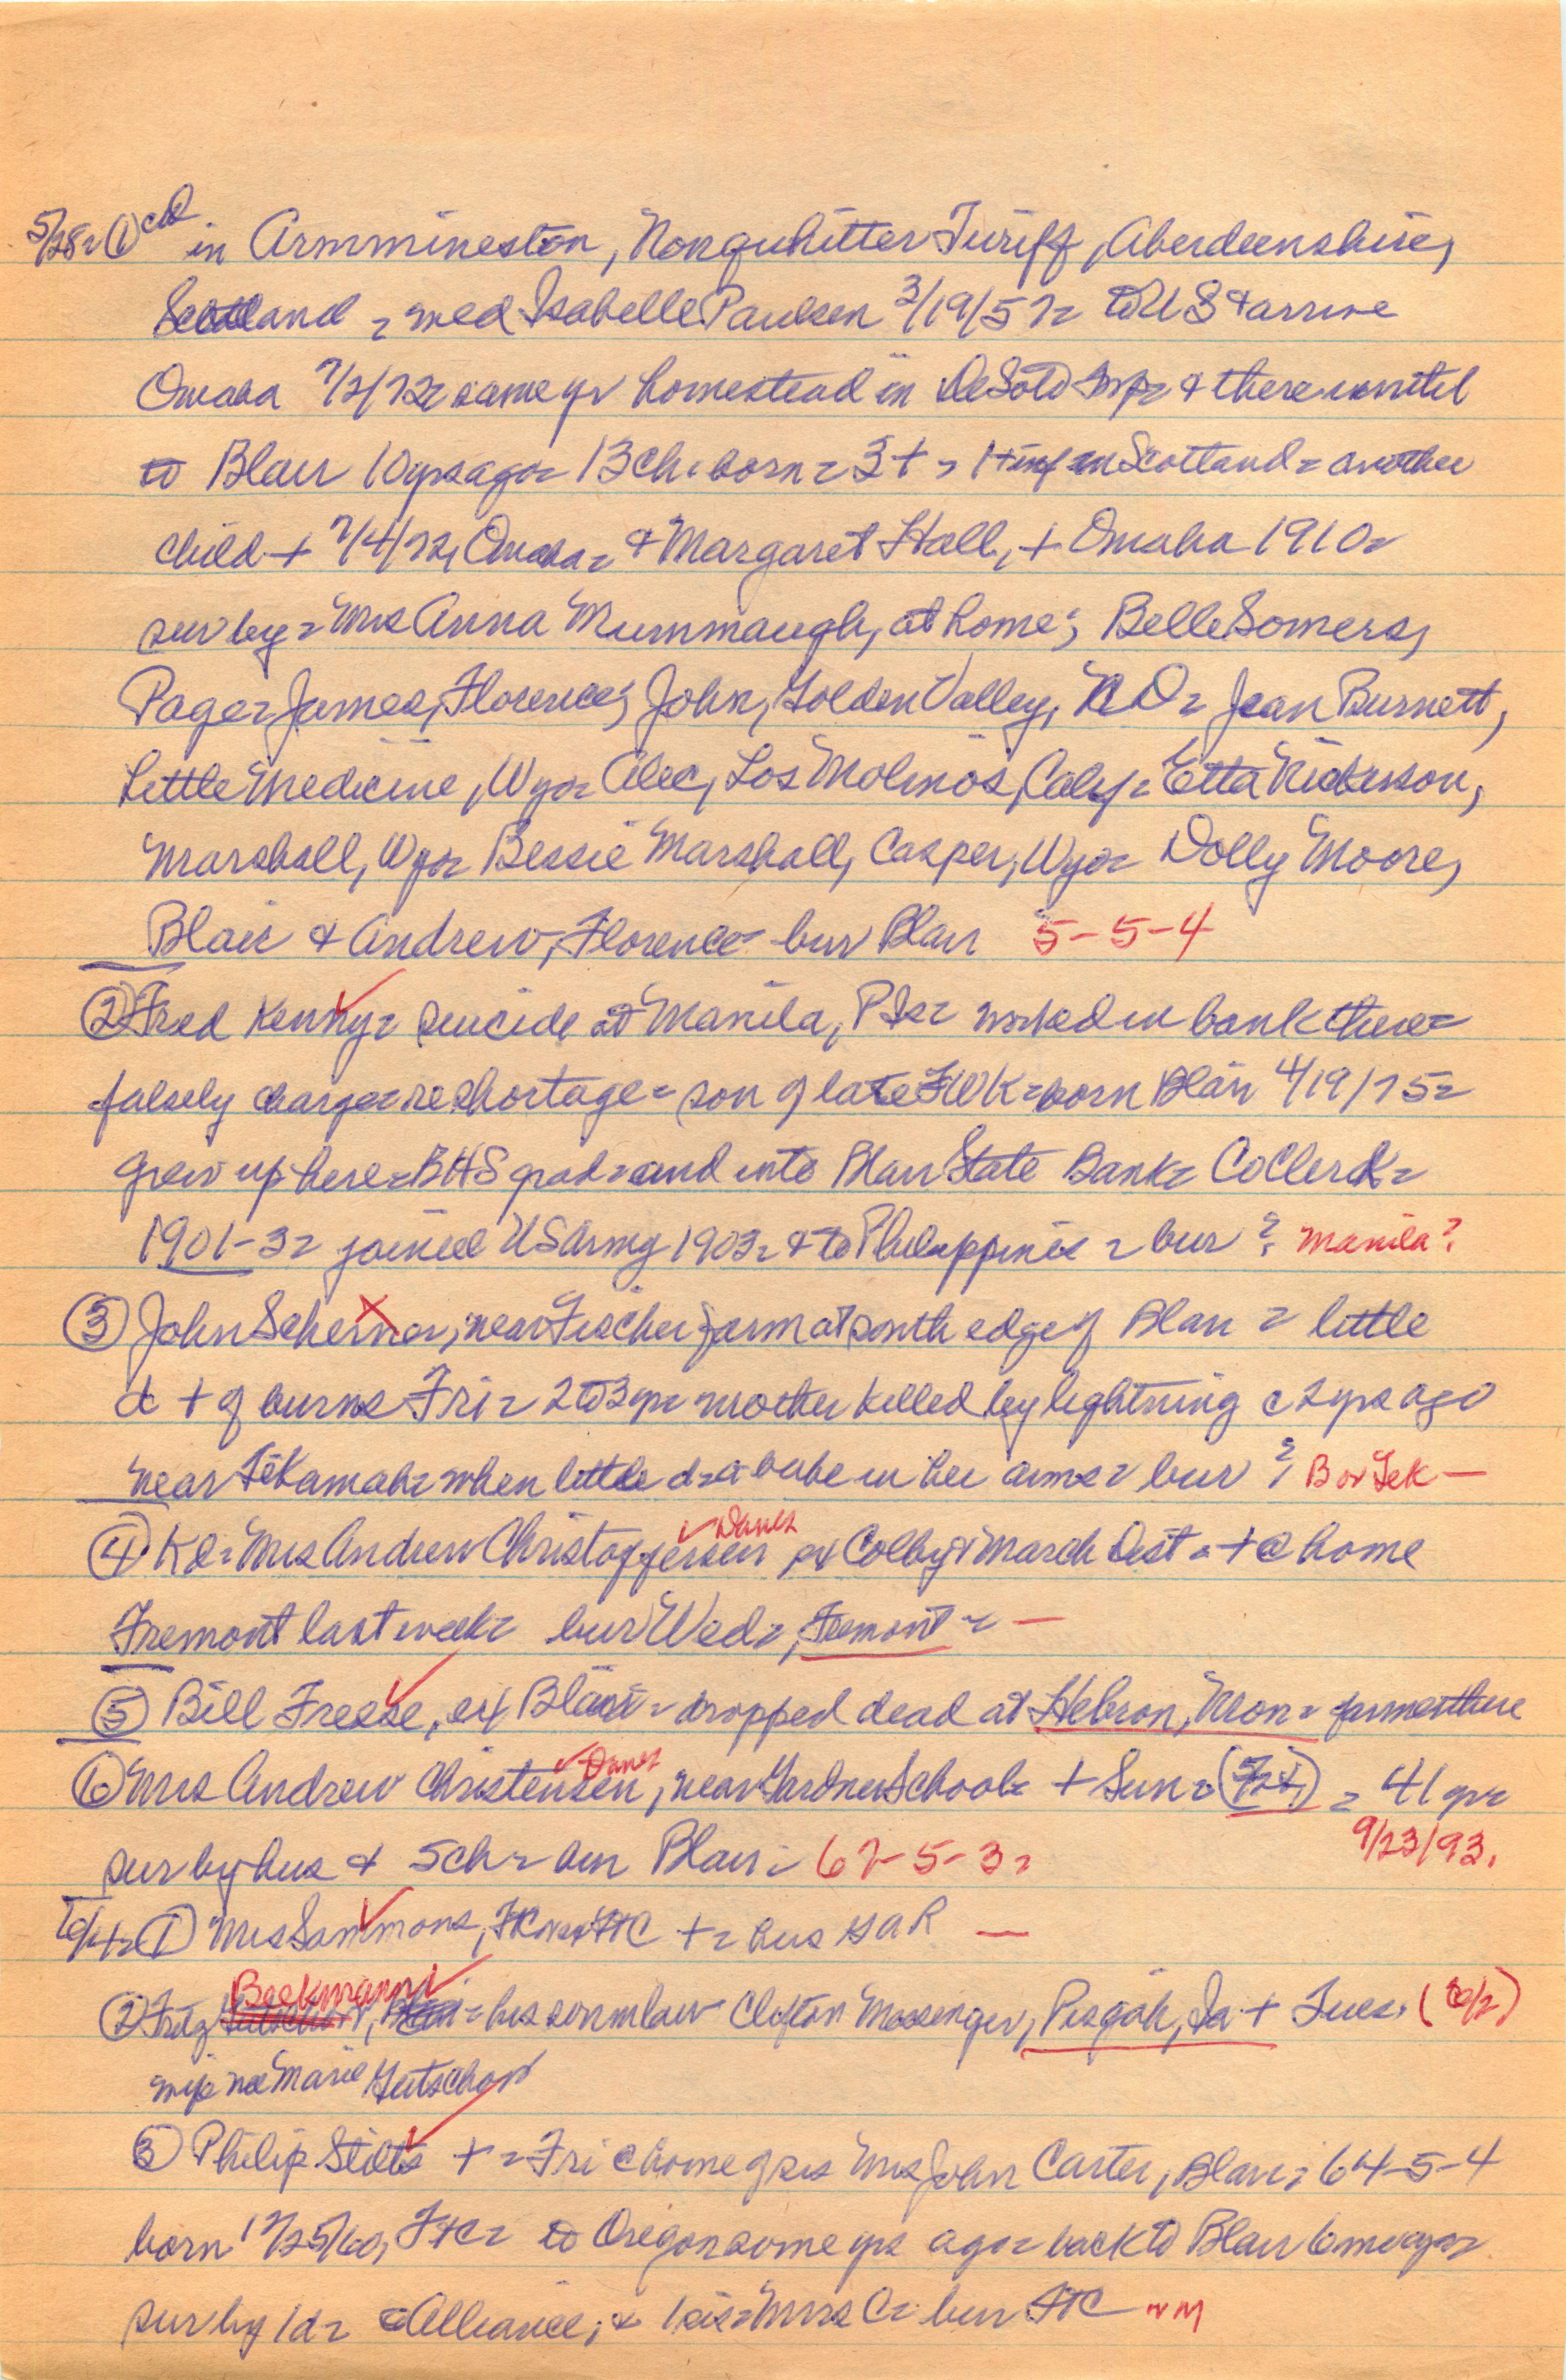 5/28 = ① ctd in Armmineston, Nonquhitter Turiff, Aberdeenshire,
Scotland = med Isabelle Paulsen 3/19/57 = to US & arrive
Omaha 7/2/72 = same yr homestead in DeSoto twp = & there until
to Blair 10 yrs ago = 13 ch = born = 3 + = 1 + inf in Scotland = another
child + 7/4/72, Omaha = & Margaret Hall, + Omaha 1910 =
sur by = Mrs Anna Mummaugh, at home; Belle Somers,
Page = James, Florence; John, Golden Valley, ND = Jean Burnett,
Little Medicine, Wyo = Alec, Los Molinos, Calif = Etta Nickerson,
Marshall, Wyo = Bessie Marshall, Casper, Wyo = Dolly Moore,
Blair & Andrew, Florence = bur Blair 5-5-4
② Fred Kenny = suicide at Manila, PI = worked in bank there =
falsely charge = re shortage = son of late FWK = born Blair 4/19/75 =
grew up here = BHS grad = and into Blair State Bank = Co Clerk =
1901-3 = joined US Army 1903 = & to Philippines = bur ? Manila?
③ John Scherner, near Fischer farm at south edge of Blair = little
d + of burns Fri = 2 to 3 yr = mother killed by lightning c 2 yrs ago
near Tekamah = when little d = a babe in her arms = bur ? B or Tek —
④ Kd = Mrs Andrew Christoffersen Danes ex Colby & March Dist = + @ home
Fremont last week = bur Wed =, Fremont = —
⑤ Bill Freese, ex Blair = dropped dead at Hebron, Mon = farmer there
⑥ Mrs Andrew Christensen Danes, near Gardner School = + Sun = = 41 yr =
9/23/93.
sur by hus & 5 ch = bur Blair = 67-5-3 =
6/4 = ① Mrs Sammons, FC + = hus GAR —
② Fritz Beekmann = his son in law Clifton Messenger, Pisgah, Ia + Tues. (6/2)
wife nee Marie Gutschow
③ Philip Stilts + = Fri @ home of sis Mrs John Carter, Blair = 64-5-4
born 12/25/60, FtC = to Oregon some yrs ago = back to Blair 6 mo ago =
sur by 1 d = @ Alliance; & 1 sis = Mrs C = bur FtC nm